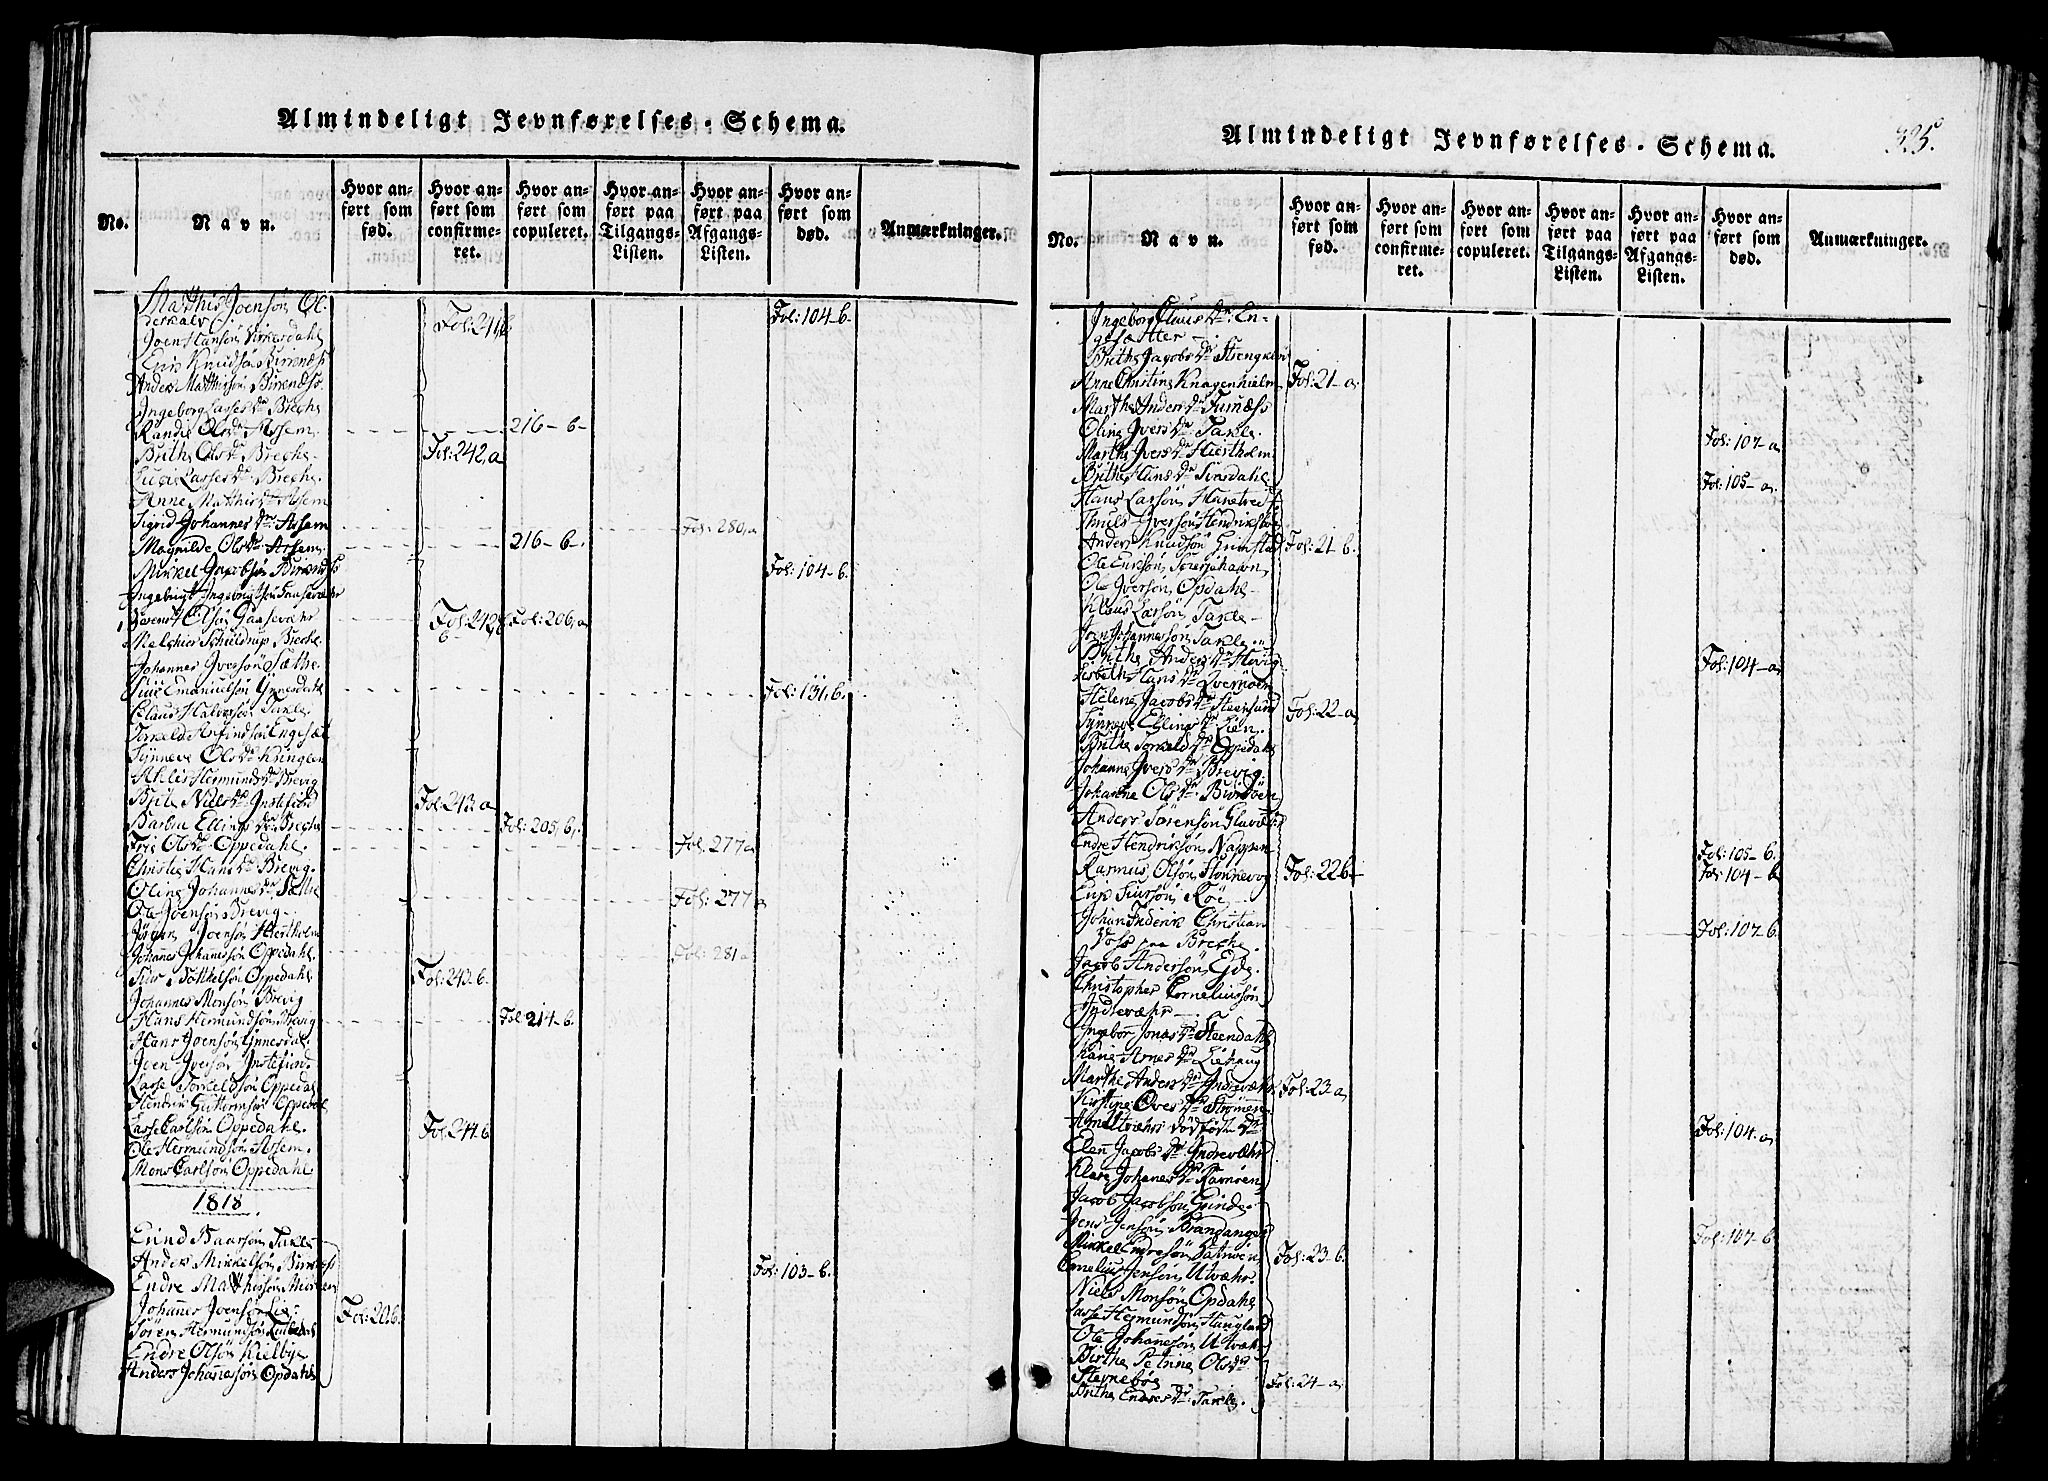 Almindeligt Jevnførelses-Schema.
No.
Navn.
Hvor anført som fød.
Hvor anført som confirmeret.
Hvor anført som copuleret.
Hvor anført paa Tilgangs-Listen.
Hvor anført paa Afgangs-Listen.
Hvor anført som død.
Anmærkninger.
Matthis Joensøn Ol- Fol: 104-b.
derkalv
Joen Hansøn Virkesdahl Fol: 241,b
Erik Knudsøn Birknæss
Anders Matthisøn Birknæss.
Ingeborg Lasses Dr Breche
Randi Ols Dr Assem 216-b-
Brithe Ols Dr Breche Fol: 242,a
Lasses Dr Breche.
Anne Matthis Dr Assem
Sigrid Johannes Dr Assem Fol: 280,a
Magnilde Ols Dr Assem. 216-b-
Mikkel Jacobsøn Birknæss Fol: 104-b.
Ingebrigt Ingebrigtsøn Gaasevæhr
Elsøn Gaasevæhr Fol: 242 b Fol: 206,a
Melchior Schieldrup Breche
Johannes Iversøn Sæthe.
Siur Emanuelsøn Ynnesdahl Fol: 131,b.
Claus Halvorsøn Takle.
Torkeld Anfindsøn Engesæt
Synneve Ols Dr Kringlen
Ahlis Hermunds Dr Brevig
Brite Niels Dr Instefiord Fol: 243. a
Barbra Ellings Dr Breche Fol: 205,b.
Ols Dr Oppedahl. Fol. 277 a
Christie Hans Dr Brevig.
Oline Johannes Dr Sæthe Fol: 277 a
Ole Joensøn Brevig.
Jørgen Joensøn Hiertholm
Johannes Johannesøn Oppedahl. Fol: 281
Siur Torkelsøn Oppedahl Fol: 243. b.
Johannes Monsøn Brevig
Hans Hermundsøn Brevig Fol 214-b.
Hans Joensøn Ynnesdal.
Joen Iversøn Instefiord.
Lasse Torkeldsøn Oppedahl
Hendrik Guttormsøn Oppedal
Lasse Carlsøn Oppedahl. Fol: 244. b
Ole Hermundsøn Assem.
Mons Carlsøn Oppedahl
1818.
Baarsøn Takle
Anders Mikkelsøn Birknæss Fol: 103-b.
Endre Matthissøn
Johannes Joensøn Lie: Fol: 20 b.
Søren Hermundsøn
Endre Olsøn Kielbye
Anders Johannesøn Opdahl
Almindeligt Jevnførelses-Schema.
325.
No.
Navn.
Hvor anført som fød.
Hvor anført som confirmeret.
Hvor anført som copuleret.
Hvor anført paa Tilgangs-Listen.
Hvor anført paa Afgangs-Listen.
Hvor anført som død.
Anmærkninger.
Ingeborg Claus Dr: En-
gesætter
Brithe Jacobs Dr
Anne Christine Knagenhielm Fol: 21-a
Marthe Anders Dr Furnæss
Oline Ivers Dr Takle. Fol: 107-a
Marthe Ivers Dr Hiertholm
Brithe Hans Dr Svardahl Fol: 105-a.
Hans Larsøn Hanetvet
Iversøn Hendriksbøe
Anders Knudsøn Grimstad Fol: 21-b.
Ole Eriksøn
Ole Iversøn Opdahl
Klaus Larsøn Takle
Joen Johannesøn Takle
Brithe Anders Dr Høvig Fol: 104-a
Lisbeth Hans Dr Qvernøen
Helene Jacobs Dr Steensund Fol: 22-a
Synneve Ellings Dr Lien.
Brithe Torkeld Dr Oppedahl
Johanne Ivers Dr Brevig.
Johanne Ols Dr
Anders Sørensøn
Endre Hendriksøn Nappen Fol: 105-b.
Rasmus Olsøn Fol: 22 b Fol: 104-b
Erik Siursøn Røe
Johan Friderik Christian Fol: 107-b.
Voss paa Breche.
Jacob Andersøn Eide.
Christopher Corneliussøn
Indrevæhr
Ingebor Jonas Dr Steendahl
Karie Arnes Dr Liehaug
Marthe Anders Dr Indrevæhr Fol: 23-a
Kirstine Oves Dr Strømen
Utvæhrs dødfødte Dr Fol: 104. a
Elen Jacobs Dr Indrevæhr
Klara Johanes Dr
Jacob Jacobsøn Grinde.
Jens Jensøn Brandanger Fol: 107-b
Mikkel Endresøn Fol: 23. b.
Cornelius Jensøn Utvæhr.
Niels Monsøn Opdahl
Lasse Hermundsøn Haugland
Ole Johannesøn Utvæhr
Birthe Petrine Ols Dr
Steinebøe Fol: 24-a
Brithe Endres Dr: Takle.